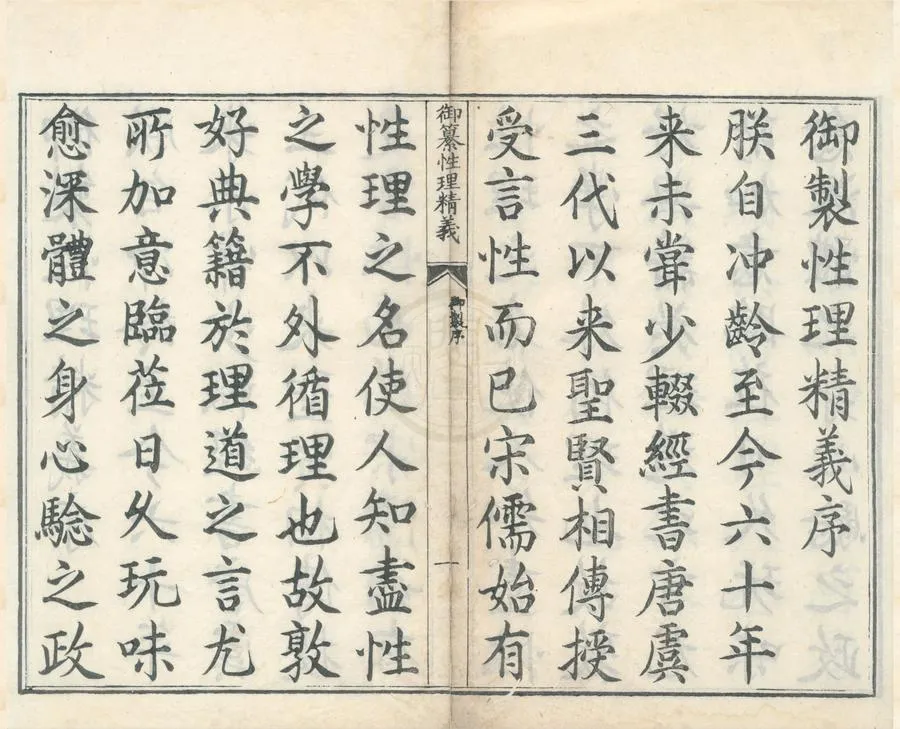 御製性理精義序
朕自沖齡至今六十年
来未嘗少輟經書唐虞
三代以来聖賢相傳授
受言性而已宋儒始有
御纂性理精義
御製序
一
性理之名使人知盡性
之學不外循理也故敦
好典籍於理道之言尤
所加意臨莅日久玩味
愈深體之身心驗之政